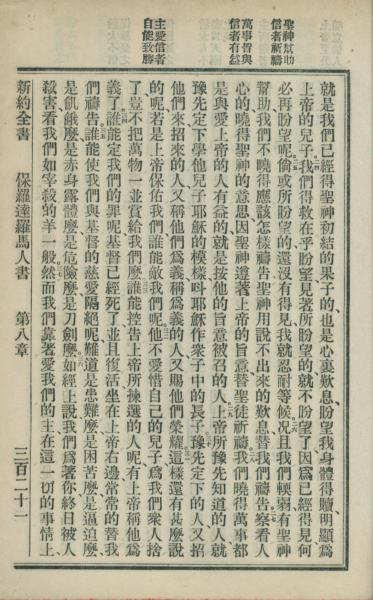 聖神幫助
信者祈禱
萬事皆與
信者有益
主愛信者
自能致勝
就是我們已經得聖神初結的果子的也是心裏歎息盼望我身體得贖明顯爲
上帝的兒子我們得救在乎盼望見著所盼望的就不盼望了因爲已經得見何
必再盼望呢倘或所盼望的還沒有得見我就忍耐等候況且我們輭弱有聖神
幫助我們不曉得應該怎樣禱告聖神用說不出來的歎息替我們禱告察看人
心的曉得聖神的意思因聖神遵著上帝的旨意替聖徒祈禱我們曉得萬事都
是與愛上帝的人有益的就是按他的旨意被召的人上帝所豫先知道的人就
豫先定下學他兒子耶穌的模樣呌耶穌作衆子中的長子豫先定下的人又招
他們來招來的人又稱他們爲義稱爲義的人又賜他們榮耀這樣還有甚麼說
的呢若是上帝保佑我們誰能敵我們呢他不愛惜自己的兒子爲我們衆人捨
了豈不把萬物一並賞給我們麼誰能控告上帝所揀選的人呢有上帝稱他爲
義了誰能定我們的罪呢基督已經死了並且復活坐在上帝右邊常常的替我
們禱告誰能使我們與基督的慈愛隔絕呢難道是患難麼是困苦麼是逼迫麼
是飢餓麼是赤身露體麼是危險麼是刀劍麼如經上說我們爲著你終日被人
殺害看我們如宰殺的羊一般然而我們靠著愛我們的主在這一切的事情上
新約全書 保羅達羅馬人書 第八章 三百二十一